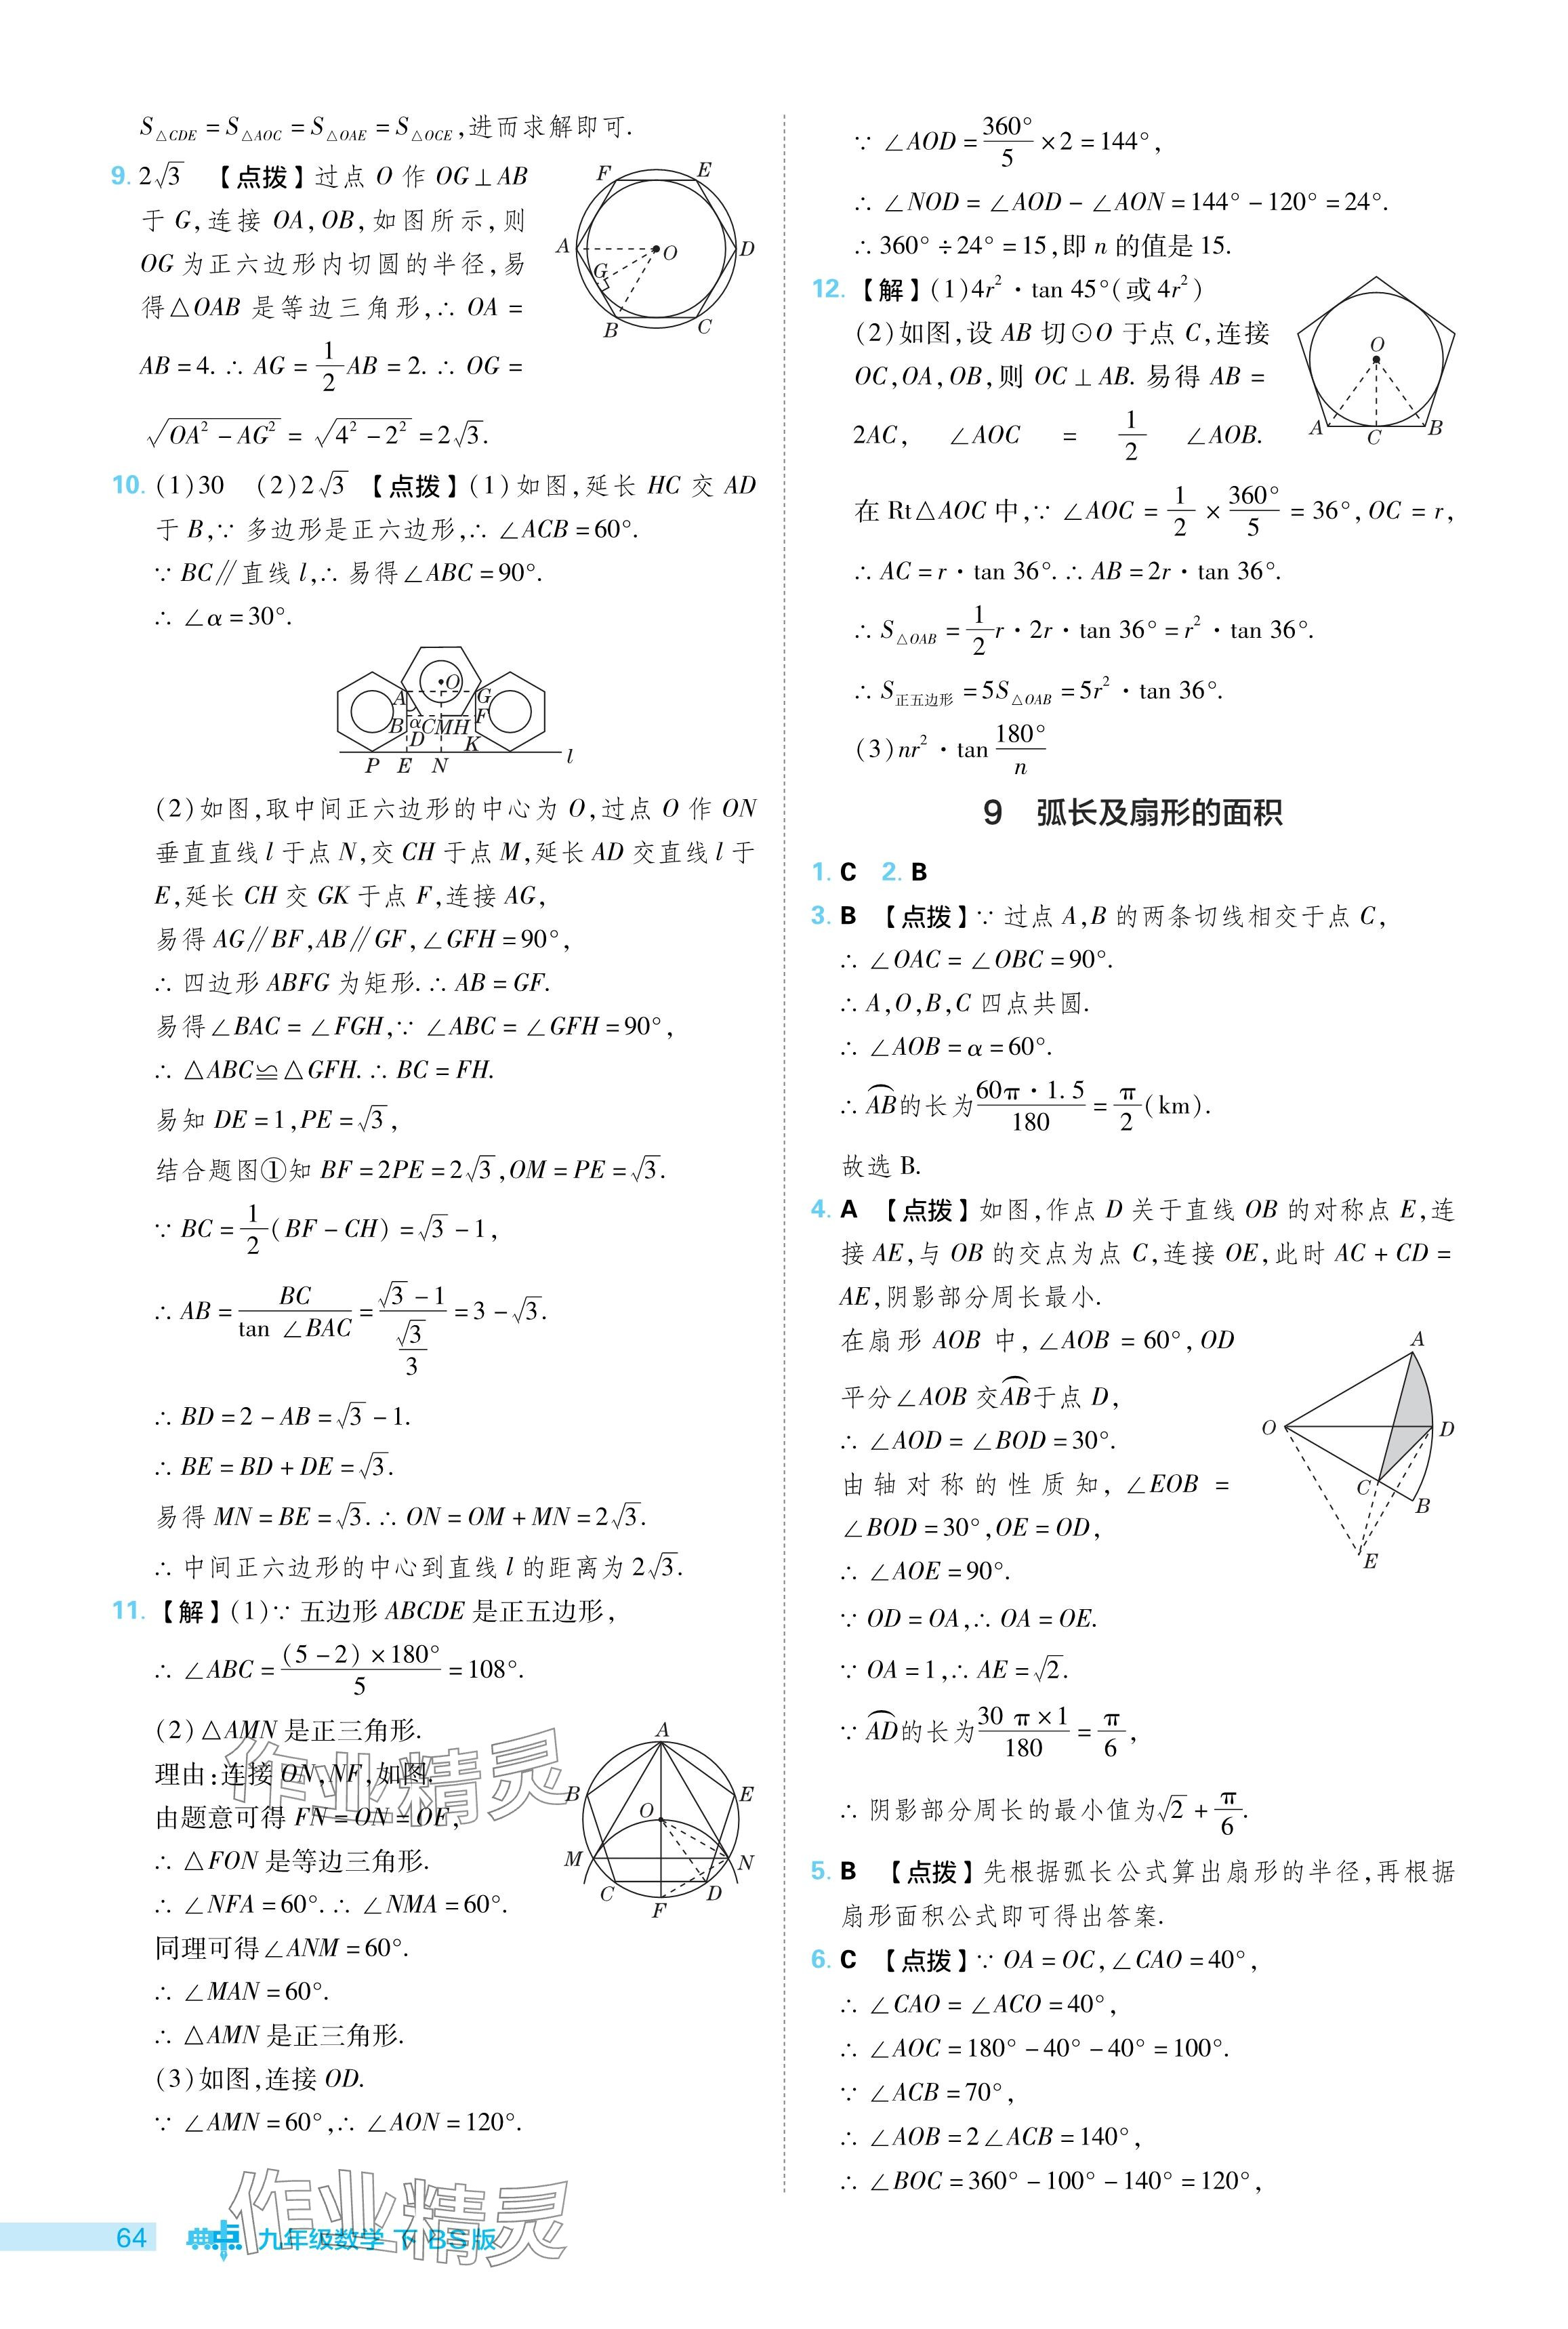 S△CDE = S△AOC = S△OAE = S△OCE,进而求解即可.
9. 2√3 【点拨】过点 O 作 OG⊥AB
于 G,连接 OA,OB,如图所示,则
OG 为正六边形内切圆的半径,易
得△OAB 是等边三角形,∴ OA =
AB = 4. ∴ AG = 1/2 AB = 2. ∴ OG =
√(OA² - AG²) = √(4² - 2²) = 2√3.
F E A O D G B C
10. (1)30 (2)2√3 【点拨】(1)如图,延长 HC 交 AD
于 B,∵ 多边形是正六边形,∴ ∠ACB = 60°.
∵ BC∥直线 l,∴ 易得∠ABC = 90°.
∴ ∠α = 30°.
O A G B α C M H F D K P E N l
(2)如图,取中间正六边形的中心为 O,过点 O 作 ON
垂直直线 l 于点 N,交 CH 于点 M,延长 AD 交直线 l 于
E,延长 CH 交 GK 于点 F,连接 AG,
易得 AG∥BF,AB∥GF,∠GFH = 90°,
∴ 四边形 ABFG 为矩形. ∴ AB = GF.
易得∠BAC = ∠FGH,∵ ∠ABC = ∠GFH = 90°,
∴ △ABC≌△GFH. ∴ BC = FH.
易知 DE = 1,PE = √3,
结合题图①知 BF = 2PE = 2√3,OM = PE = √3.
∵ BC = 1/2 (BF - CH) = √3 - 1,
∴ AB = BC/tan ∠BAC = (√3 - 1)/(√3/3) = 3 - √3.
∴ BD = 2 - AB = √3 - 1.
∴ BE = BD + DE = √3.
易得 MN = BE = √3. ∴ ON = OM + MN = 2√3.
∴ 中间正六边形的中心到直线 l 的距离为 2√3.
11. 【解】(1)∵ 五边形 ABCDE 是正五边形,
∴ ∠ABC = (5 - 2) × 180°/5 = 108°.
(2)△AMN 是正三角形.
理由:连接 ON,NF,如图.
由题意可得 FN = ON = OF,
∴ △FON 是等边三角形.
∴ ∠NFA = 60°. ∴ ∠NMA = 60°.
同理可得∠ANM = 60°.
∴ ∠MAN = 60°.
∴ △AMN 是正三角形.
A B E O M N C D F
(3)如图,连接 OD.
∵ ∠AMN = 60°,∴ ∠AON = 120°.
∵ ∠AOD = 360°/5 × 2 = 144°,
∴ ∠NOD = ∠AOD - ∠AON = 144° - 120° = 24°.
∴ 360° ÷ 24° = 15,即 n 的值是 15.
12. 【解】(1)4r²·tan 45°(或 4r²)
(2)如图,设 AB 切⊙O 于点 C,连接
OC,OA,OB,则 OC⊥AB. 易得 AB =
2AC, ∠AOC = 1/2 ∠AOB.
O A C B
在 Rt△AOC 中,∵ ∠AOC = 1/2 × 360°/5 = 36°,OC = r,
∴ AC = r·tan 36°. ∴ AB = 2r·tan 36°.
∴ S△OAB = 1/2 r·2r·tan 36° = r²·tan 36°.
∴ S正五边形 = 5S△OAB = 5r²·tan 36°.
(3)nr²·tan 180°/n
9 弧长及扇形的面积
1. C 2. B
3. B 【点拨】∵ 过点 A,B 的两条切线相交于点 C,
∴ ∠OAC = ∠OBC = 90°.
∴ A,O,B,C 四点共圆.
∴ ∠AOB = α = 60°.
∴ ⌒AB的长为 60π·1.5/180 = π/2 (km).
故选 B.
4. A 【点拨】如图,作点 D 关于直线 OB 的对称点 E,连
接 AE,与 OB 的交点为点 C,连接 OE,此时 AC + CD =
AE,阴影部分周长最小.
在扇形 AOB 中,∠AOB = 60°,OD
平分∠AOB 交⌒AB于点 D,
∴ ∠AOD = ∠BOD = 30°.
由轴对称的性质知,∠EOB =
∠BOD = 30°,OE = OD,
∴ ∠AOE = 90°.
A O D C B E
∵ OD = OA,∴ OA = OE.
∵ OA = 1,∴ AE = √2.
∵ ⌒AD的长为 30 π × 1/180 = π/6,
∴ 阴影部分周长的最小值为√2 + π/6.
5. B 【点拨】先根据弧长公式算出扇形的半径,再根据
扇形面积公式即可得出答案.
6. C 【点拨】∵ OA = OC,∠CAO = 40°,
∴ ∠CAO = ∠ACO = 40°,
∴ ∠AOC = 180° - 40° - 40° = 100°.
∵ ∠ACB = 70°,
∴ ∠AOB = 2∠ACB = 140°,
∴ ∠BOC = 360° - 100° - 140° = 120°,
作业精灵
作业精灵
64 典点 九年级数学 下 BS版